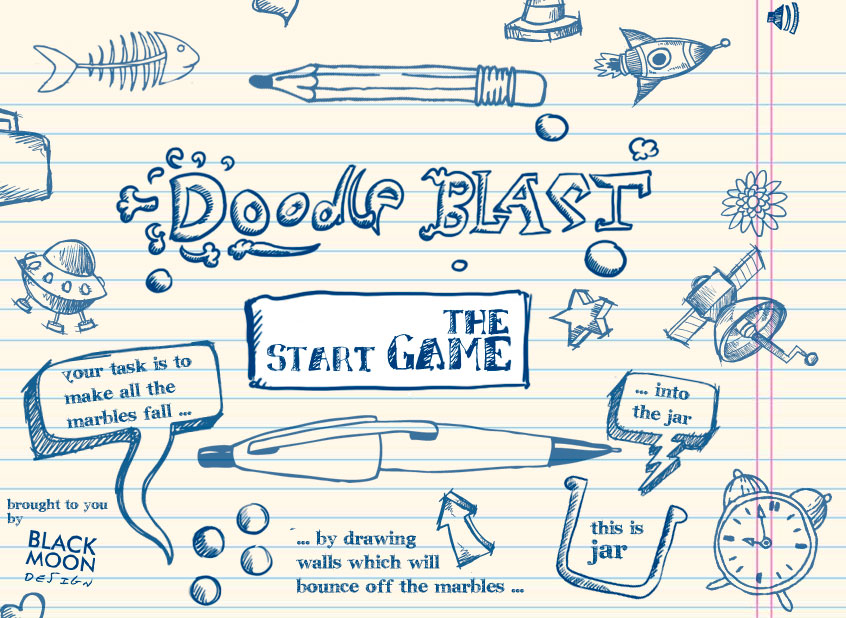 Doodle BLAST
THE
START GAME
your task is to
make all the
marbles fall ...
... into
the jar
brought to you
by
BLACK
MOON
DESIGN
... by drawing
walls which will
bounce off the marbles ...
this is
jar